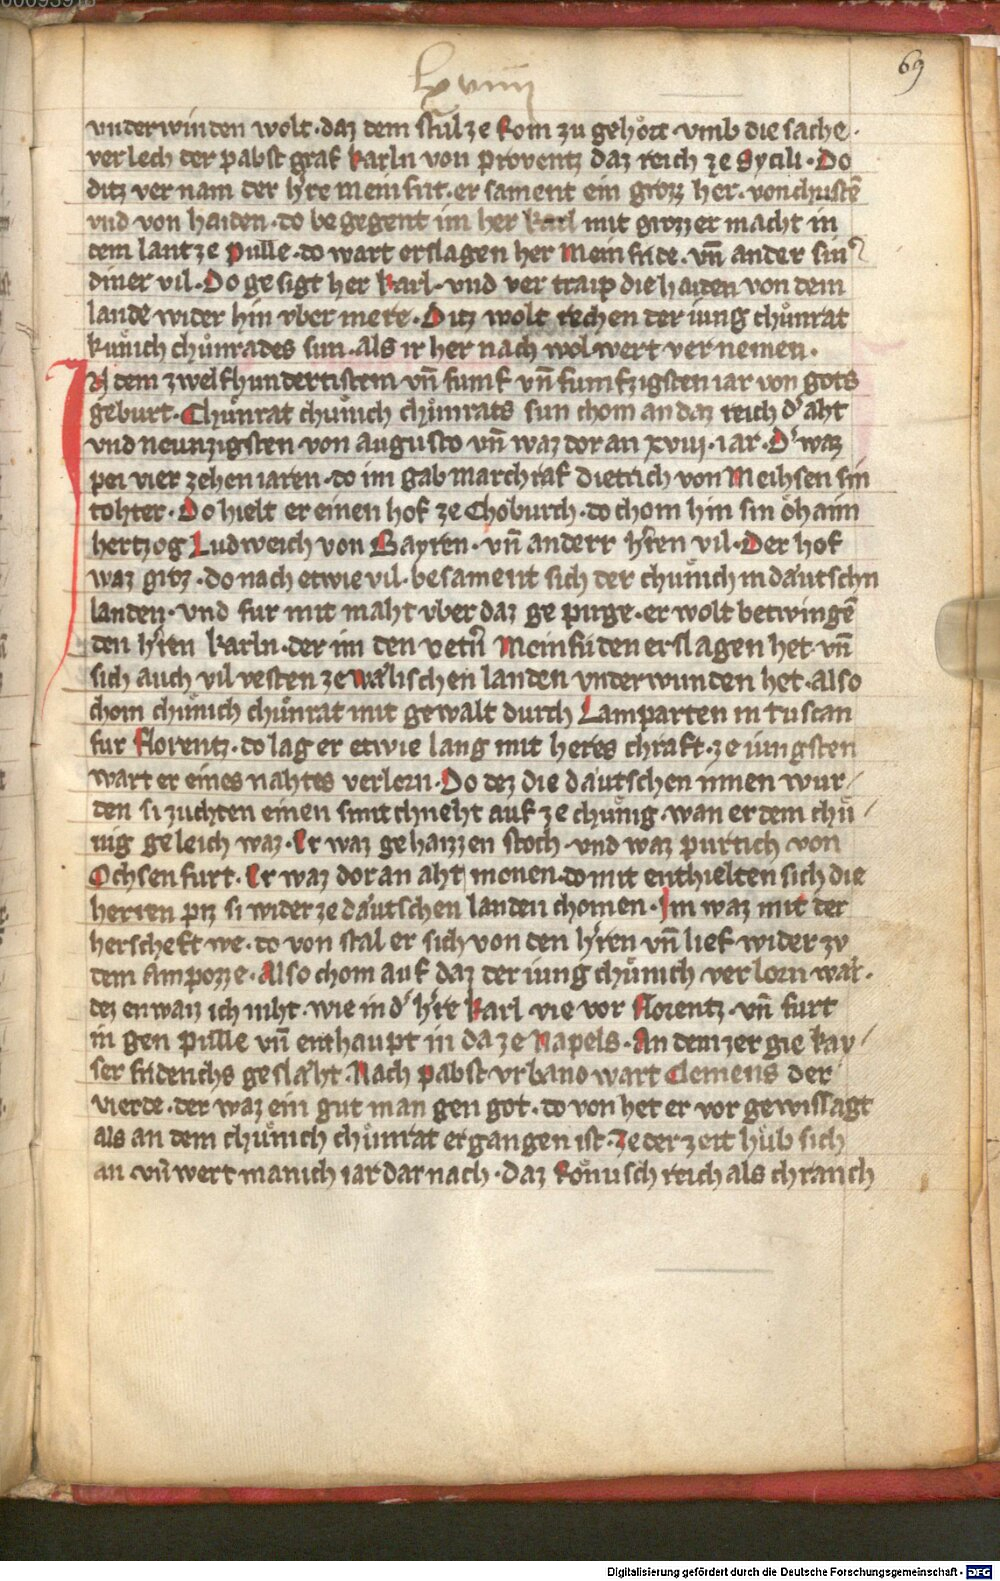 lxviiii
69
vnderwinden wolt · daz dem stul ze Rom zu gehoͤrt · vmb die sache ·
verlech der pabst graf karln von prouentz daz reich ze Sycili · Do
ditz ver nam der hͬre meinfrit · er sament ein grozz her · von christē
vnd von haiden · do be gegent im her karl mit grozzer macht in
dem lant ze pulle · do wart erslagen her Meinfride · vn̄ ander sinͬ
diner vil · Do ge sigt her karl · vnd ver traip die haiden von dem
lande wider hin vber mere · Ditz wolt rechen der iung chuͦnrat
kuͤnich chuͦnrades sun · als ir her nach wol wert ver nemen ·
IN dem zwelfhundertistem vn̄ funf vn̄ funfzigsten iar von gots
geburt · Chuͦnrat chuͤnich chuͦnrats sun chom an daz reich dͬ aht
vnd neunzigsten von augusto vn̄ waz dor an xviii · iar · Dͬ waz
pei vier zehen iaren · do im gab marchraf dietrich von Meihsen sin
tohter · Do hielt er einen hof ze Choburch · do chom hin sin oͤhaim
hertzog Ludweich von Bayren · vn̄ anderr hͬren vil · Der hof
waz groz · do nach etwie vil · besament sich der chuͤnich in daͤutschn
landen · vnd fur mit maht vber daz ge pirge · er wolt betwingē
den hͬren karln · der im den veterͬ Meinfriden erslagen het · vn̄
sich auch vil vesten ze waͤlischen landen vnderwunden het · also
chom chuͤnich chuͦnrat mit gewalt durch Lamparten in Tuscan
fur Florentz · do lag er etwie lang mit heres chraft · ze iungsten
wart er eines nahtes verlorn · Do dez die daͤutschen innen wur/
den si zuchten einen smit chneht auf ze chuͤnig · wan er dem chuͤ/
nig geleich waz · Er waz gehaizzen stoch · vnd waz purtich von
Ochsenfurt · Er waz dor an aht monen · do mit enthielten sich die
herren piz si wider ze daͤutschen landen chomen · Im waz mit der
herscheft we · do von stal er sich von den hͬren vn̄ lief wider zv
dem Ampozze · Also chom auf daz der iung chuͤnich verlorn war ·
dez enwaiz ich niht · wie in dͬ hͬre karl vie vor Florentz · vn̄ furt
in gen pulle vn̄ enthaupt in da ze Napels · An dem zer gie kay/
ser fridrichs geslaͤht · Nach pabst vrbano wart Clemens der
vierde · der waz ein gut man gen got · do von het er vor gewissagt
als an dem chuͤnich chuͦnrat ergangen ist · Ze der zeit huͤb sich
an vn̄ wert manich iar dar nach · daz Roͤmisch reich als chranch
Digitalisierung gefördert durch die Deutsche Forschungsgemeinschaft - DFG